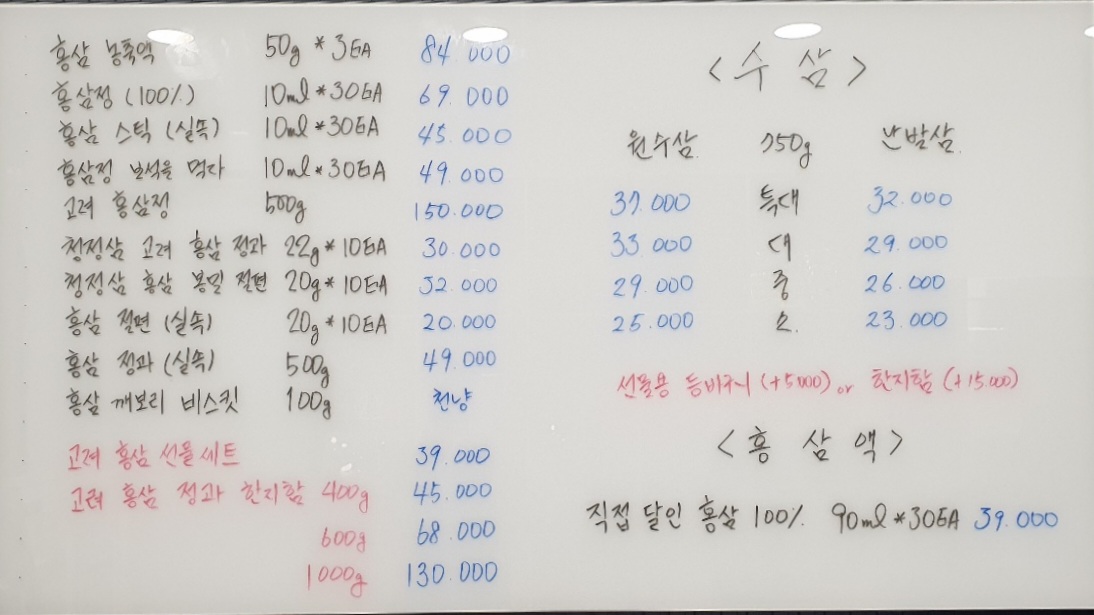 홍삼 농축액 50g * 3EA 84.000
홍삼정 (100%) 10ml * 30EA 69.000
홍삼 스틱 (실속) 10ml * 30EA 45.000
홍삼정 보석을 먹다 10ml * 30EA 49.000
고려 홍삼정 500g 150.000
청정삼 고려 홍삼 정과 22g * 10EA 30.000
청정삼 홍삼 봉밀 절편 20g * 10EA 32.000
홍삼 절편 (실속) 20g * 10EA 20.000
홍삼 정과 (실속) 500g 49.000
홍삼 깨보리 비스킷 100g 천냥
고려 홍삼 선물세트 39.000
고려 홍삼 정과 한지함 400g 45.000
600g 68.000
1000g 130.000
<수 삼>
원수삼 750g 난발삼
37.000 특대 32.000
33.000 대 29.000
29.000 중 26.000
25.000 소 23.000
선물용 등바구니 (+5000) or 한지함 (+15.000)
<홍 삼 액>
직접 달인 홍삼 100% 90ml * 30EA 39.000